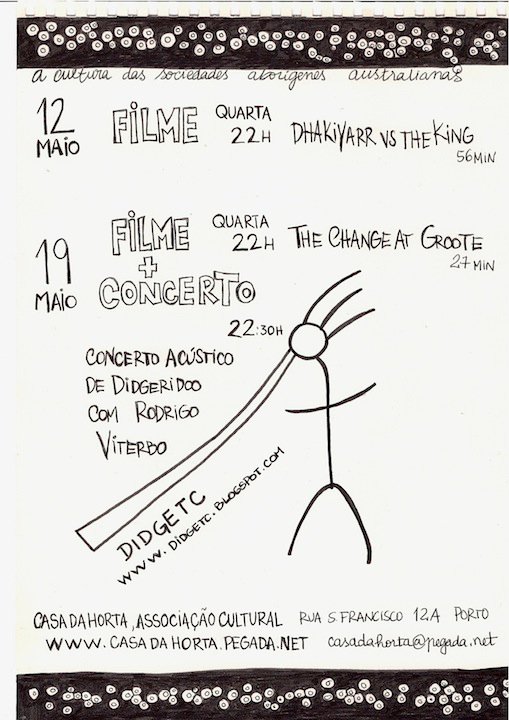 a cultura das sociedades aborígenes australianas
12 MAIO
FILME
QUARTA 22H
DHAKIYARR VS THE KING
56 MIN
19 MAIO
FILME + CONCERTO
QUARTA 22H
THE CHANGE AT GROOTE
27 MIN
22:30H
CONCERTO ACÚSTICO
DE DIDGERIDOO
COM RODRIGO
VITERBO
DIDGETC
WWW.DIDGETC.BLOGSPOT.COM
CASA DA HORTA, ASSOCIAÇÃO CULTURAL RUA S. FRANCISCO 12A PORTO
WWW.CASADAHORTA.PEGADA.NET casadahorta@pegada.net